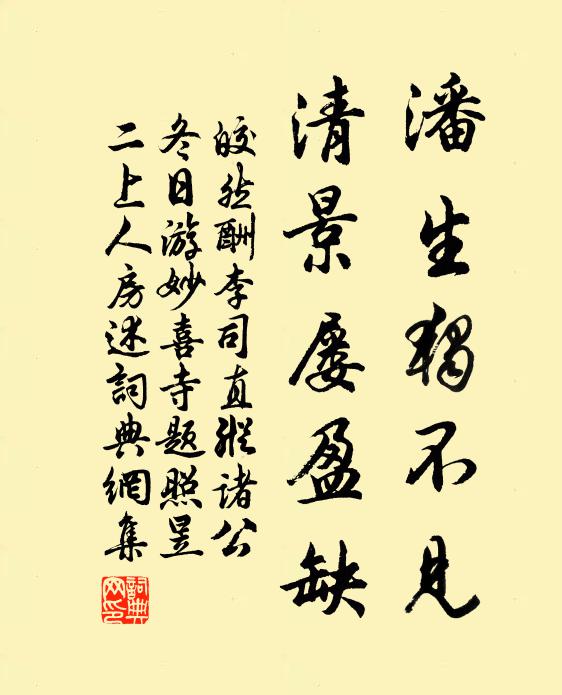 潘生獨不見
清景屡盈缺
皎然酬李司直縱諸公
冬日游妙喜寺题照昱
二上人房述詞典網集
詞典網印